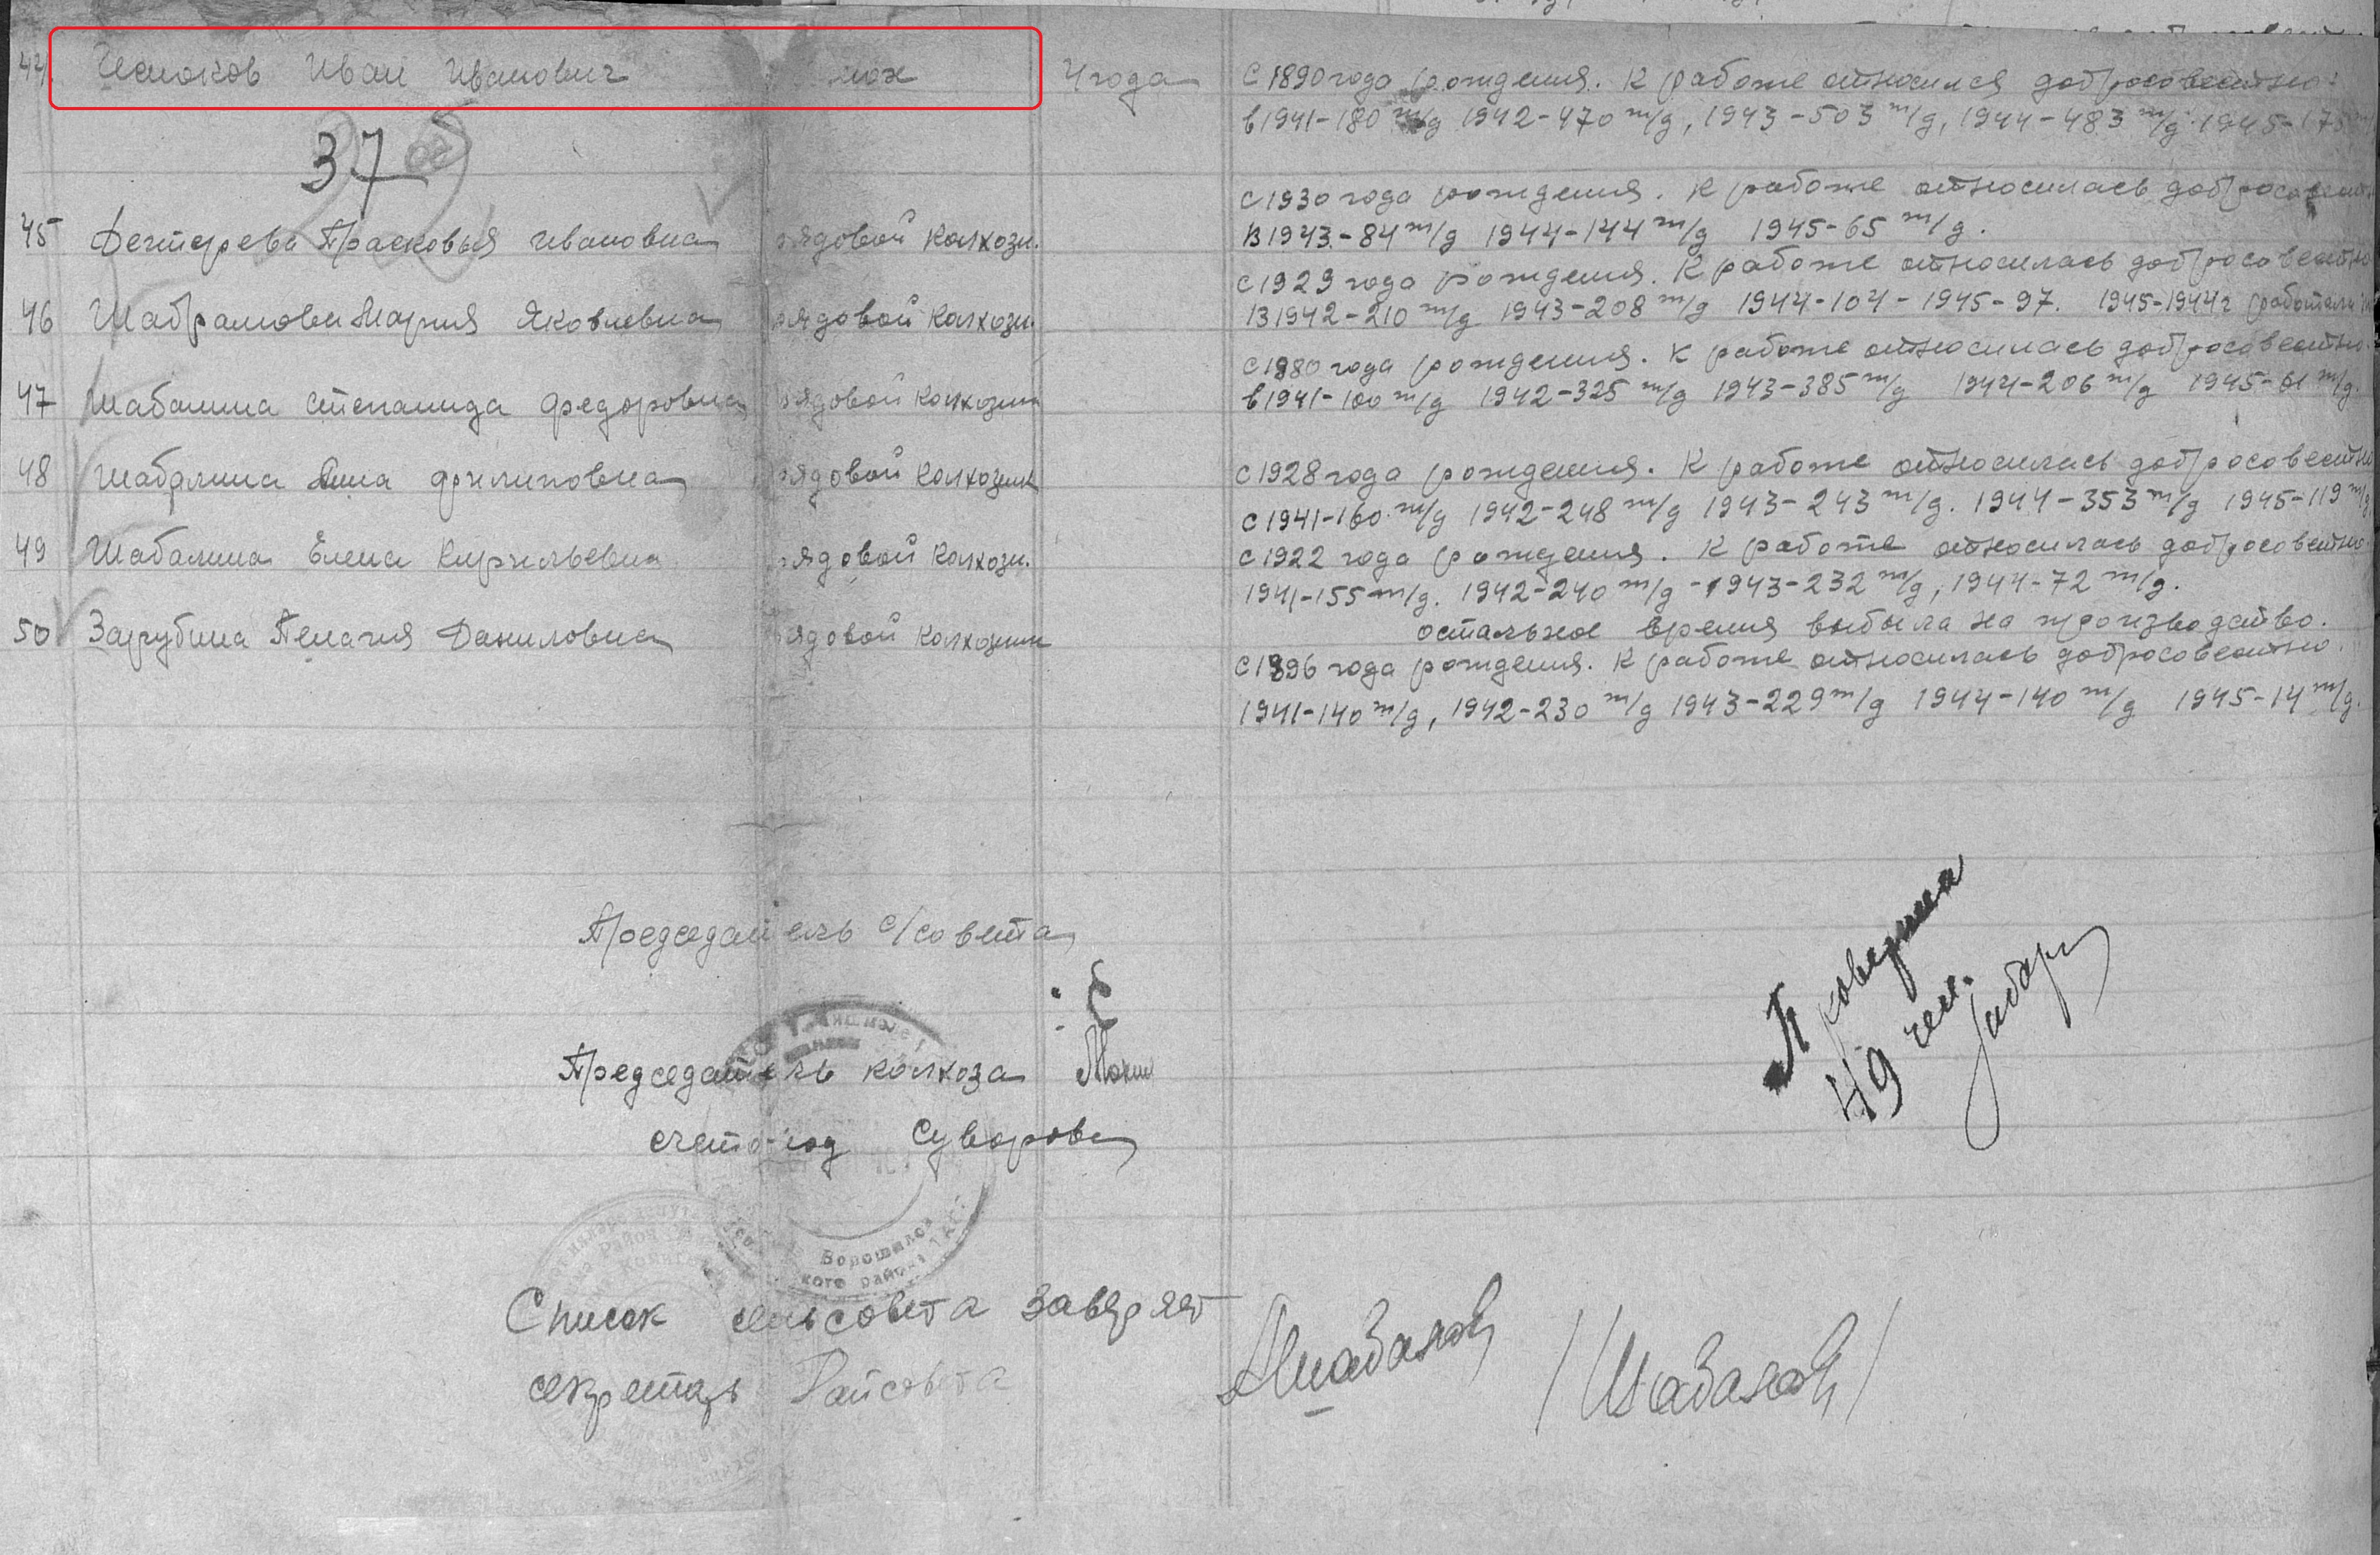 44. Иван Иванович 4 года С 1890 года рождения. К работе относился добросовестно.
в 1941-180 т/д 1942-470 т/д, 1943-503 т/д, 1944-483 т/д 1945-175
37
С 1930 года рождения. К работе относилась добросовест
45 Дегтерева Прасковья Ивановна рядовой колхозн. В 1943-84 т/д 1944-144 т/д 1945-65 т/д.
С 1929 года рождения. К работе относилась добросовестно
46 Шабрамова Мария Яковлевна рядовой колхозн. В 1942-210 т/д 1943-208 т/д 1944-104- 1945-97. 1945-1944г работала
С 1880 года рождения. К работе относилась добросовестно.
47 Шабалина Степанида Федоровна рядовой колхозник в 1941-100 т/д 1942-325 т/д 1943-385 т/д 1944-206 т/д 1945-61 т/д.
48 Шабалина Анна Филиповна рядовой колхозник С 1928 года рождения. К работе относилась добросовестно
С 1941-160 т/д 1942-248 т/д 1943-243 т/д. 1944-353 т/д 1945-119 т/д
49 Шабалина Елена Кирильевна рядовой колхозн. С 1922 года рождения. К работе относилась добросовестно.
1941-155 т/д. 1942-240 т/д -1943-232 т/д, 1944-72 т/д.
50 Зарубина Пелагия Даниловна рядовой колхозник остальное время выбыла на производство.
С 1896 года рождения. К работе относилась добросовестно.
1941-140 т/д, 1942-230 т/д 1943-229 т/д 1944-140 т/д 1945-14 т/д.
Председатель с/совета
Председатель колхоза
счетовод Суворова
49 чел.
Ворошилов
кого района
Список сельсовета заверяет
секретарь Райсовета Шабалов /Шабалов/